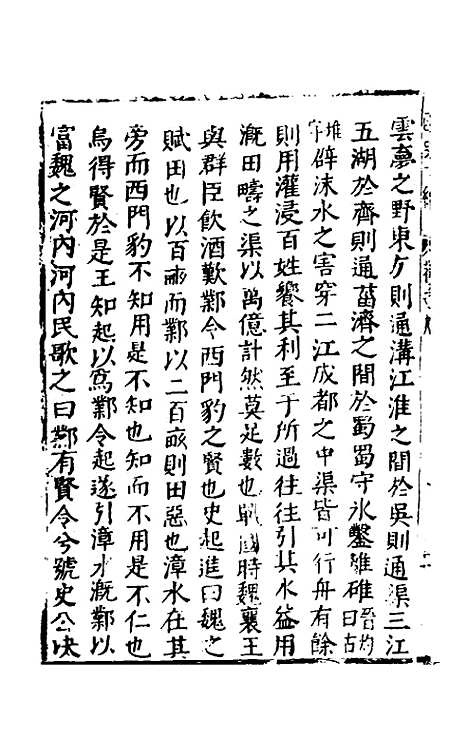 雲夢之野東方則通溝江淮之間於吳則通渠三江
五湖於齊則通菑濟之間於蜀蜀守氷鑿離碓晉灼曰古
堆字辟沫水之害穿二江成都之中渠皆可行舟有餘
則用灌浸百姓饗其利至于所過往往引其水益用
溉田疇之渠以萬億計然莫足數也戰國時魏襄王
與群臣飲酒歎鄴令西門豹之賢也史起進曰魏之
賦田也以百畝而鄴以二百畝則田惡也漳水在其
旁而西門豹不知用是不知也知而不用是不仁也
烏得賢於是王知起以為鄴令起遂引漳水溉鄴以
富魏之河內河內民歌之曰鄴有賢令兮號史公决